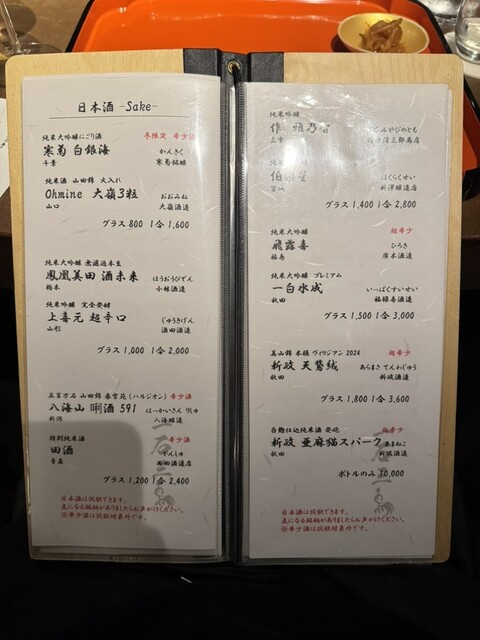 日本酒 -Sake-
純米大吟醸にごり酒 冬限定 希少酒
寒菊 白銀海 かんきく
千葉 寒菊銘醸
純米酒 山田錦 火入れ
Ohmine 大嶺3粒 おおみね
山口 大嶺酒造
グラス 800 1合 1,600
純米大吟醸 無濾過本生
鳳凰美田 酒未来 ほうおうびでん
栃木 小林酒造
純米吟醸 完全発酵
上喜元 超辛口 じょうきげん
山形 酒田酒造
グラス 1,000 1合 2,000
五百万石 山田錦 春紫苑 (ハルジオン) 希少酒
八海山 唎酒 591 はっかいさん
新潟 八海醸造
特別純米酒 希少酒
田酒 でんしゅ
青森 西田酒造店
グラス 1,200 1合 2,400
日本酒は状飲できます。
気になる銘柄がありましたらお声がけください。
※希少酒は状飲対象外です。
純米吟醸
作 雅乃智 みやびのとも
三重 清水清三郎商店
伯楽星 はくらくせい
宮城 新澤醸造店
グラス 1,400 1合 2,800
純米大吟醸 超希少
飛露喜 ひろき
福島 廣木酒造
純米大吟醸 プレミアム
一白水成 いっぱくすいせい
秋田 福禄寿酒造
グラス 1,500 1合 3,000
美山錦 本横 ヴィリジアン 2024 超希少
新政 天鵞絨 あらまさ てんがじゅう
秋田 新政酒造
グラス 1,800 1合 3,600
白麹仕込純米酒 発泡 超希少
新政 亜麻猫スパーク あまねこ
秋田 新政酒造
ボトルのみ 10,000
日本酒は状飲できます。
気になる銘柄がありましたらお声がけください。
※希少酒は状飲対象外です。